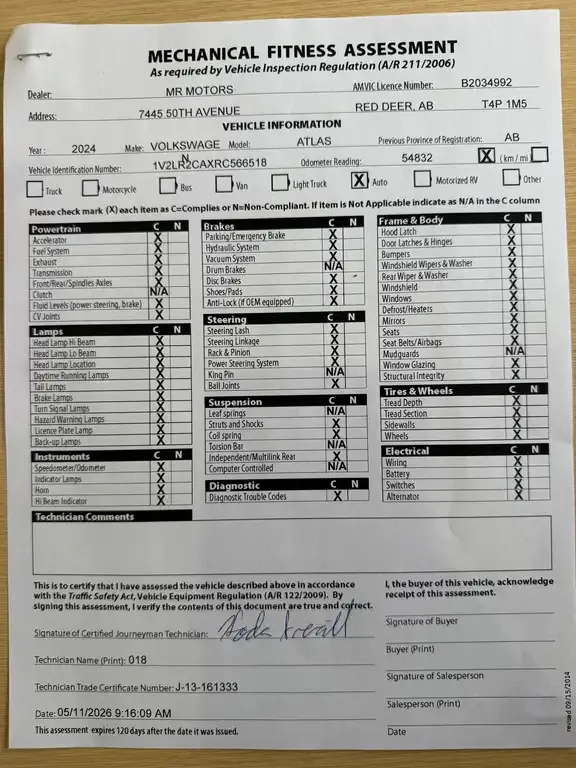 MECHANICAL FITNESS ASSESSMENT
As required by Vehicle Inspection Regulation (A/R 211/2006)
Dealer: MR MOTORS AMVIC Licence Number: B2034992
Address: 7445 50TH AVENUE RED DEER, AB T4P 1M5
VEHICLE INFORMATION
Year: 2024 Make: VOLKSWAGEN Model: ATLAS Previous Province of Registration: AB
Vehicle Identification Number: 1V2LR2CAXRC566518 Odometer Reading: 54832 X (km / mi)
Truck Motorcycle Bus Van Light Truck X Auto Motorized RV Other
Please check mark (X) each item as C=Complies or N=Non-Compliant. If item is Not Applicable indicate as N/A in the C column
Powertrain C N
Accelerator X
Fuel System X
Exhaust X
Transmission X
Front/Rear/Spindles Axles X
Clutch N/A
Fluid Levels (power steering, brake) X
CV Joints X
Lamps C N
Head Lamp Hi Beam X
Head Lamp Lo Beam X
Head Lamp Location X
Daytime Running Lamps X
Tail Lamps X
Brake Lamps X
Turn Signal Lamps X
Hazard Warning Lamps X
Licence Plate Lamp X
Back-up Lamps X
Instruments C N
Speedometer/Odometer X
Indicator Lamps X
Horn X
Hi Beam Indicator X
Brakes C N
Parking/Emergency Brake X
Hydraulic System X
Vacuum System X
Drum Brakes N/A
Disc Brakes X
Shoes/Pads X
Anti-Lock (if OEM equipped) X
Steering C N
Steering Lash X
Steering Linkage X
Rack & Pinion X
Power Steering System X
King Pin N/A
Ball Joints X
Suspension C N
Leaf springs N/A
Struts and Shocks X
Coil spring X
Torsion Bar N/A
Independent/Multilink Rear X
Computer Controlled N/A
Diagnostic C N
Diagnostic Trouble Codes X
Frame & Body C N
Hood Latch X
Door Latches & Hinges X
Bumpers X
Windshield Wipers & Washers X
Rear Wiper & Washer X
Windshield X
Windows X
Defrost/Heaters X
Mirrors X
Seats X
Seat Belts/Airbags X
Mudguards N/A
Window Glazing X
Structural Integrity X
Tires & Wheels C N
Tread Depth X
Tread Section X
Sidewalls X
Wheels X
Electrical C N
Wiring X
Battery X
Switches X
Alternator X
Technician Comments
This is to certify that I have assessed the vehicle described above in accordance
with the Traffic Safety Act, Vehicle Equipment Regulation (A/R 122/2009). By
signing this assessment, I verify the contents of this document are true and correct.
Signature of Certified Journeyman Technician:
Technician Name (Print): 018
Technician Trade Certificate Number: J-13-161333
Date: 05/11/2026 9:16:09 AM
This assessment expires 120 days after the date it was issued.
I, the buyer of this vehicle, acknowledge
receipt of this assessment.
Signature of Buyer
Buyer (Print)
Signature of Salesperson
Salesperson (Print)
Date
revised 09/15/2014